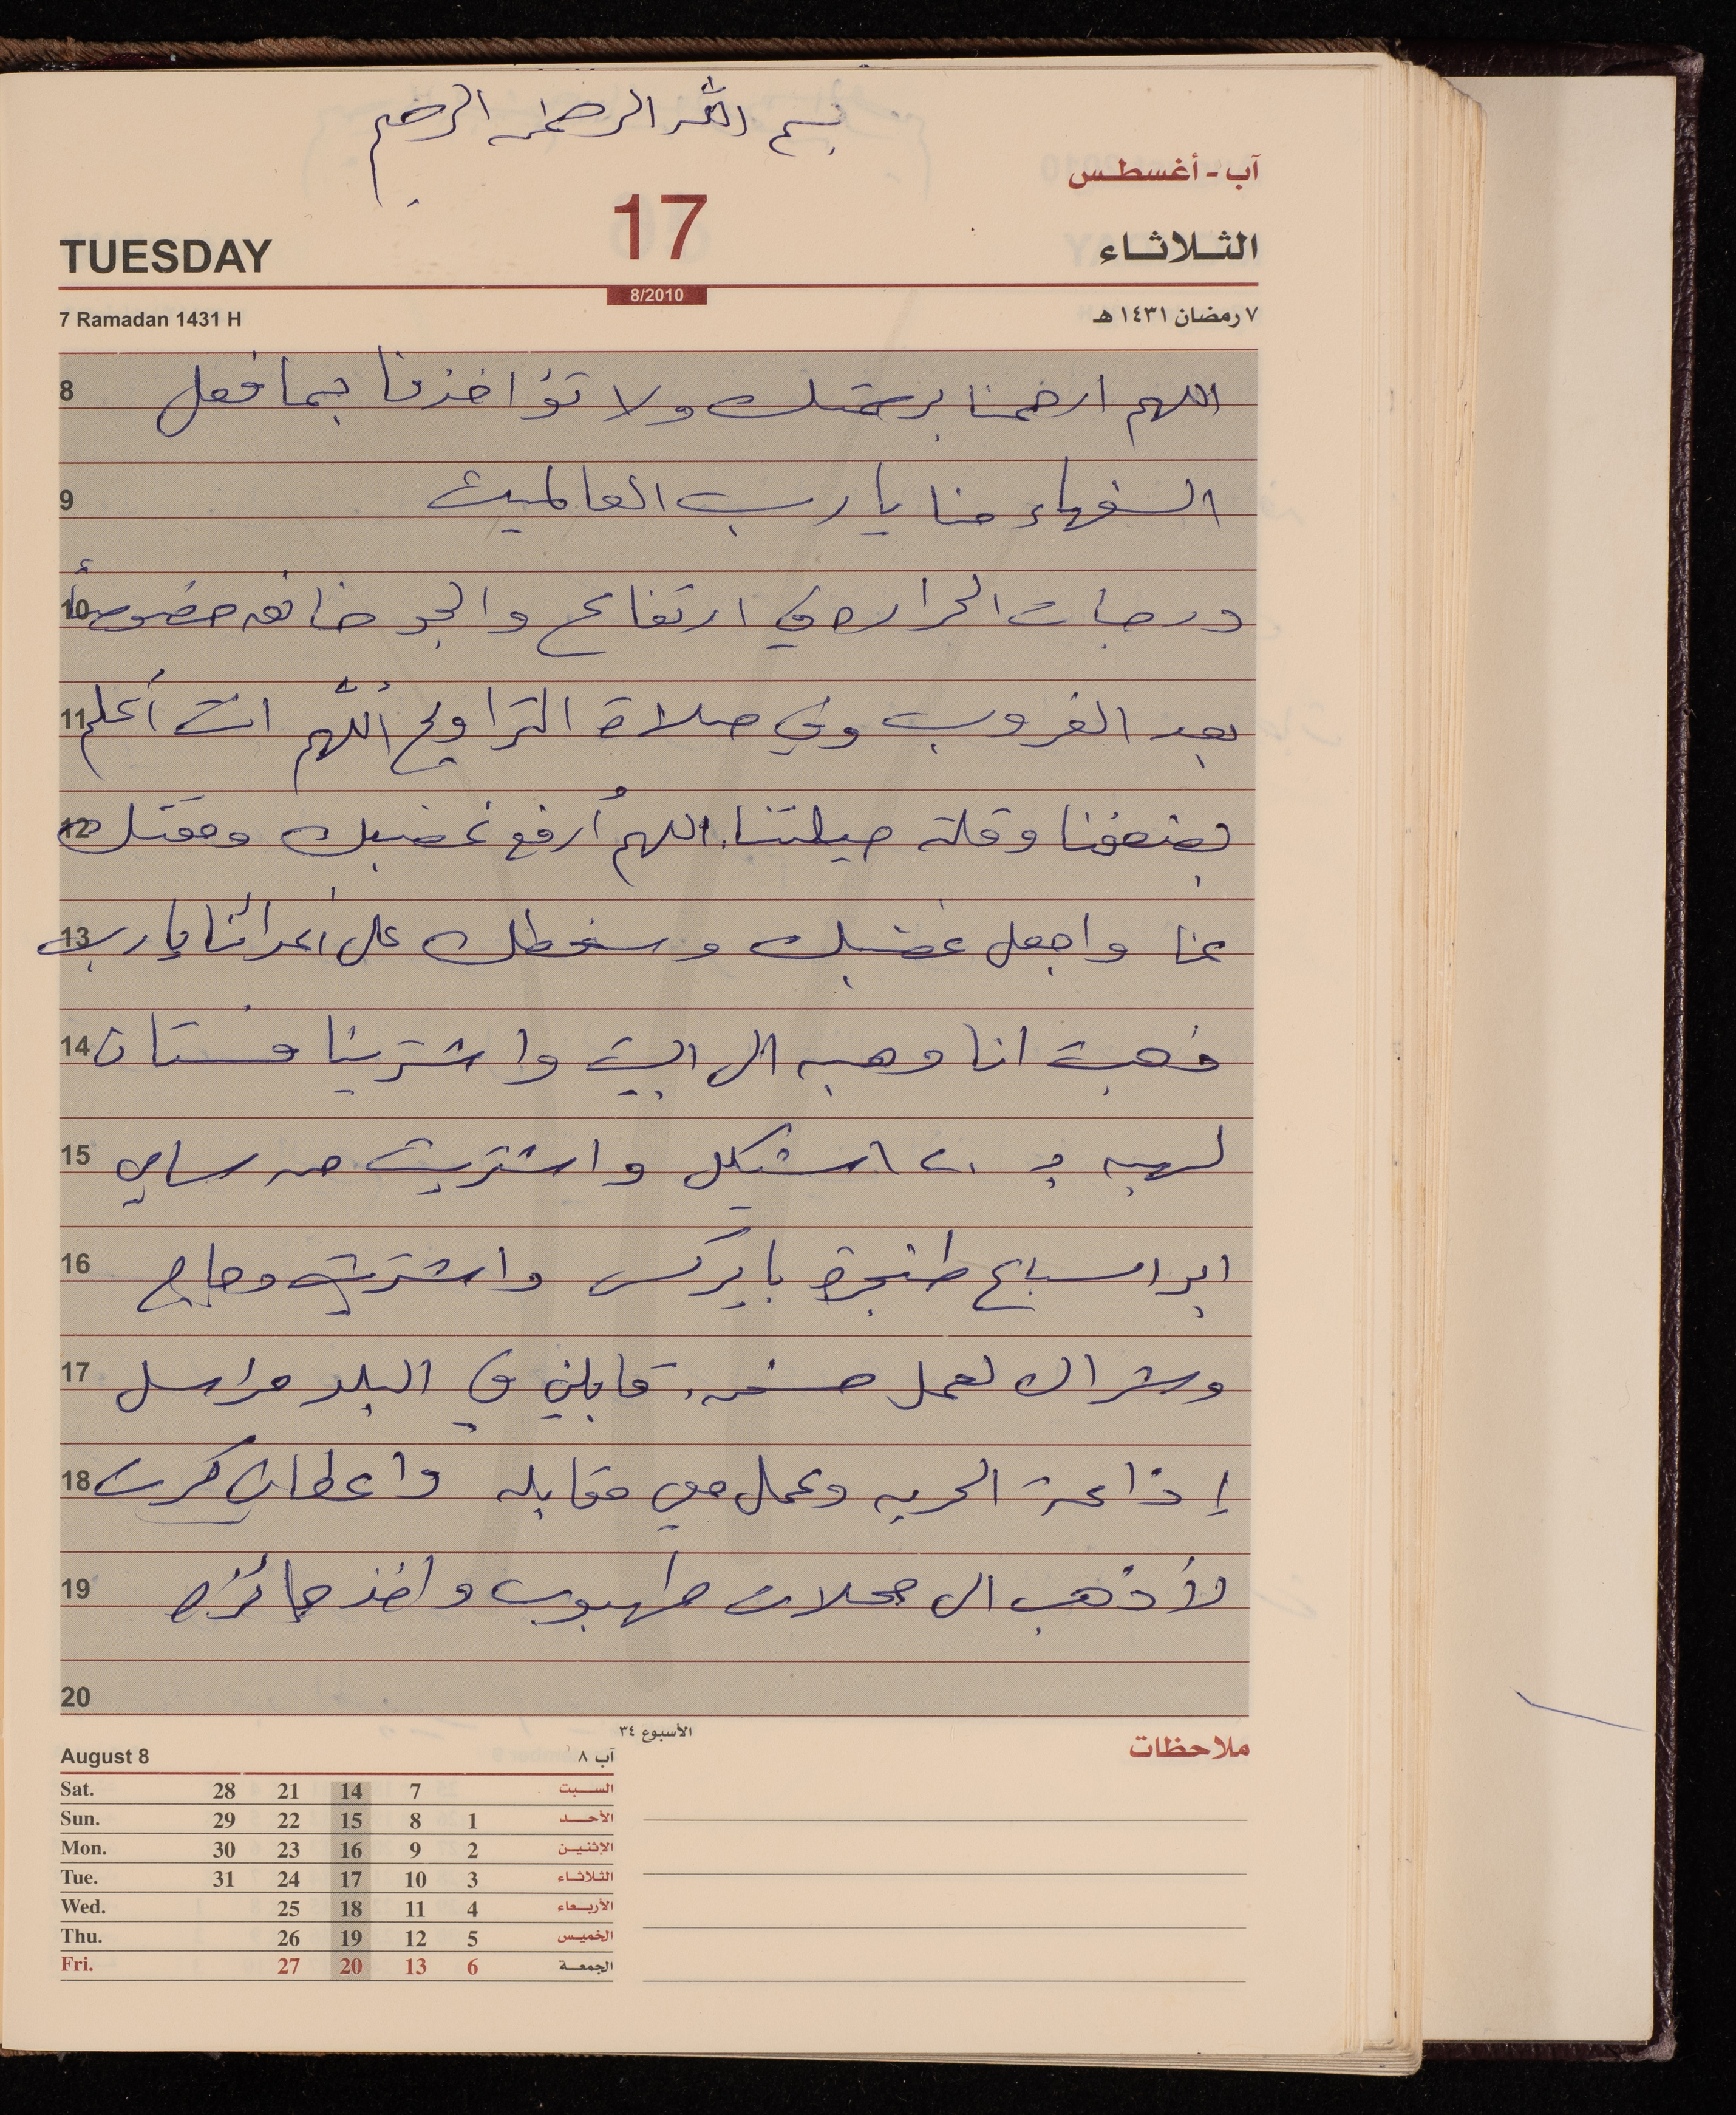 بسم الله الرحمن الرحيم
آب - أغسطس
TUESDAY 17 الثلاثاء
8/2010
7 Ramadan 1431 H ٧ رمضان ١٤٣١ هـ
8 اللهم ارحمنا برحمتك ولا تؤاخذنا بما فعل
9 السفهاء منا يا رب العالمين
10 درجات الحراره في ارتفاع والجو خانق خصوصاً
11 بعد الغروب وفي صلاة التراويح اللهم انت أعلم
12 بضعفنا وقلة حيلتنا. اللهم أرفع غضبك ومقتك
13 عنا واجعل غضبك وسخطك على أعدائنا يا رب
14 ذهبت انا وهبه الى البيت واشترينا فستان
15 لهبه ب ١٢٠ شيكل واشتريت من سامي
16 ابو اسباع طنجرة بايركس واشتريت دجاج
17 وشراك لعمل مسخن. قابلني في البلد مراسل
18 إذاعة الحريه وعمل معي مقابله واعطاني كرت
19 لأذهب الى محلات طهبوب واخذ جائزه
20
الأسبوع ٣٤
ملاحظات
August 8 آب ٨
Sat. 28 21 14 7 السبت
Sun. 29 22 15 8 1 الأحد
Mon. 30 23 16 9 2 الإثنين
Tue. 31 24 17 10 3 الثلاثاء
Wed. 25 18 11 4 الأربعاء
Thu. 26 19 12 5 الخميس
Fri. 27 20 13 6 الجمعة